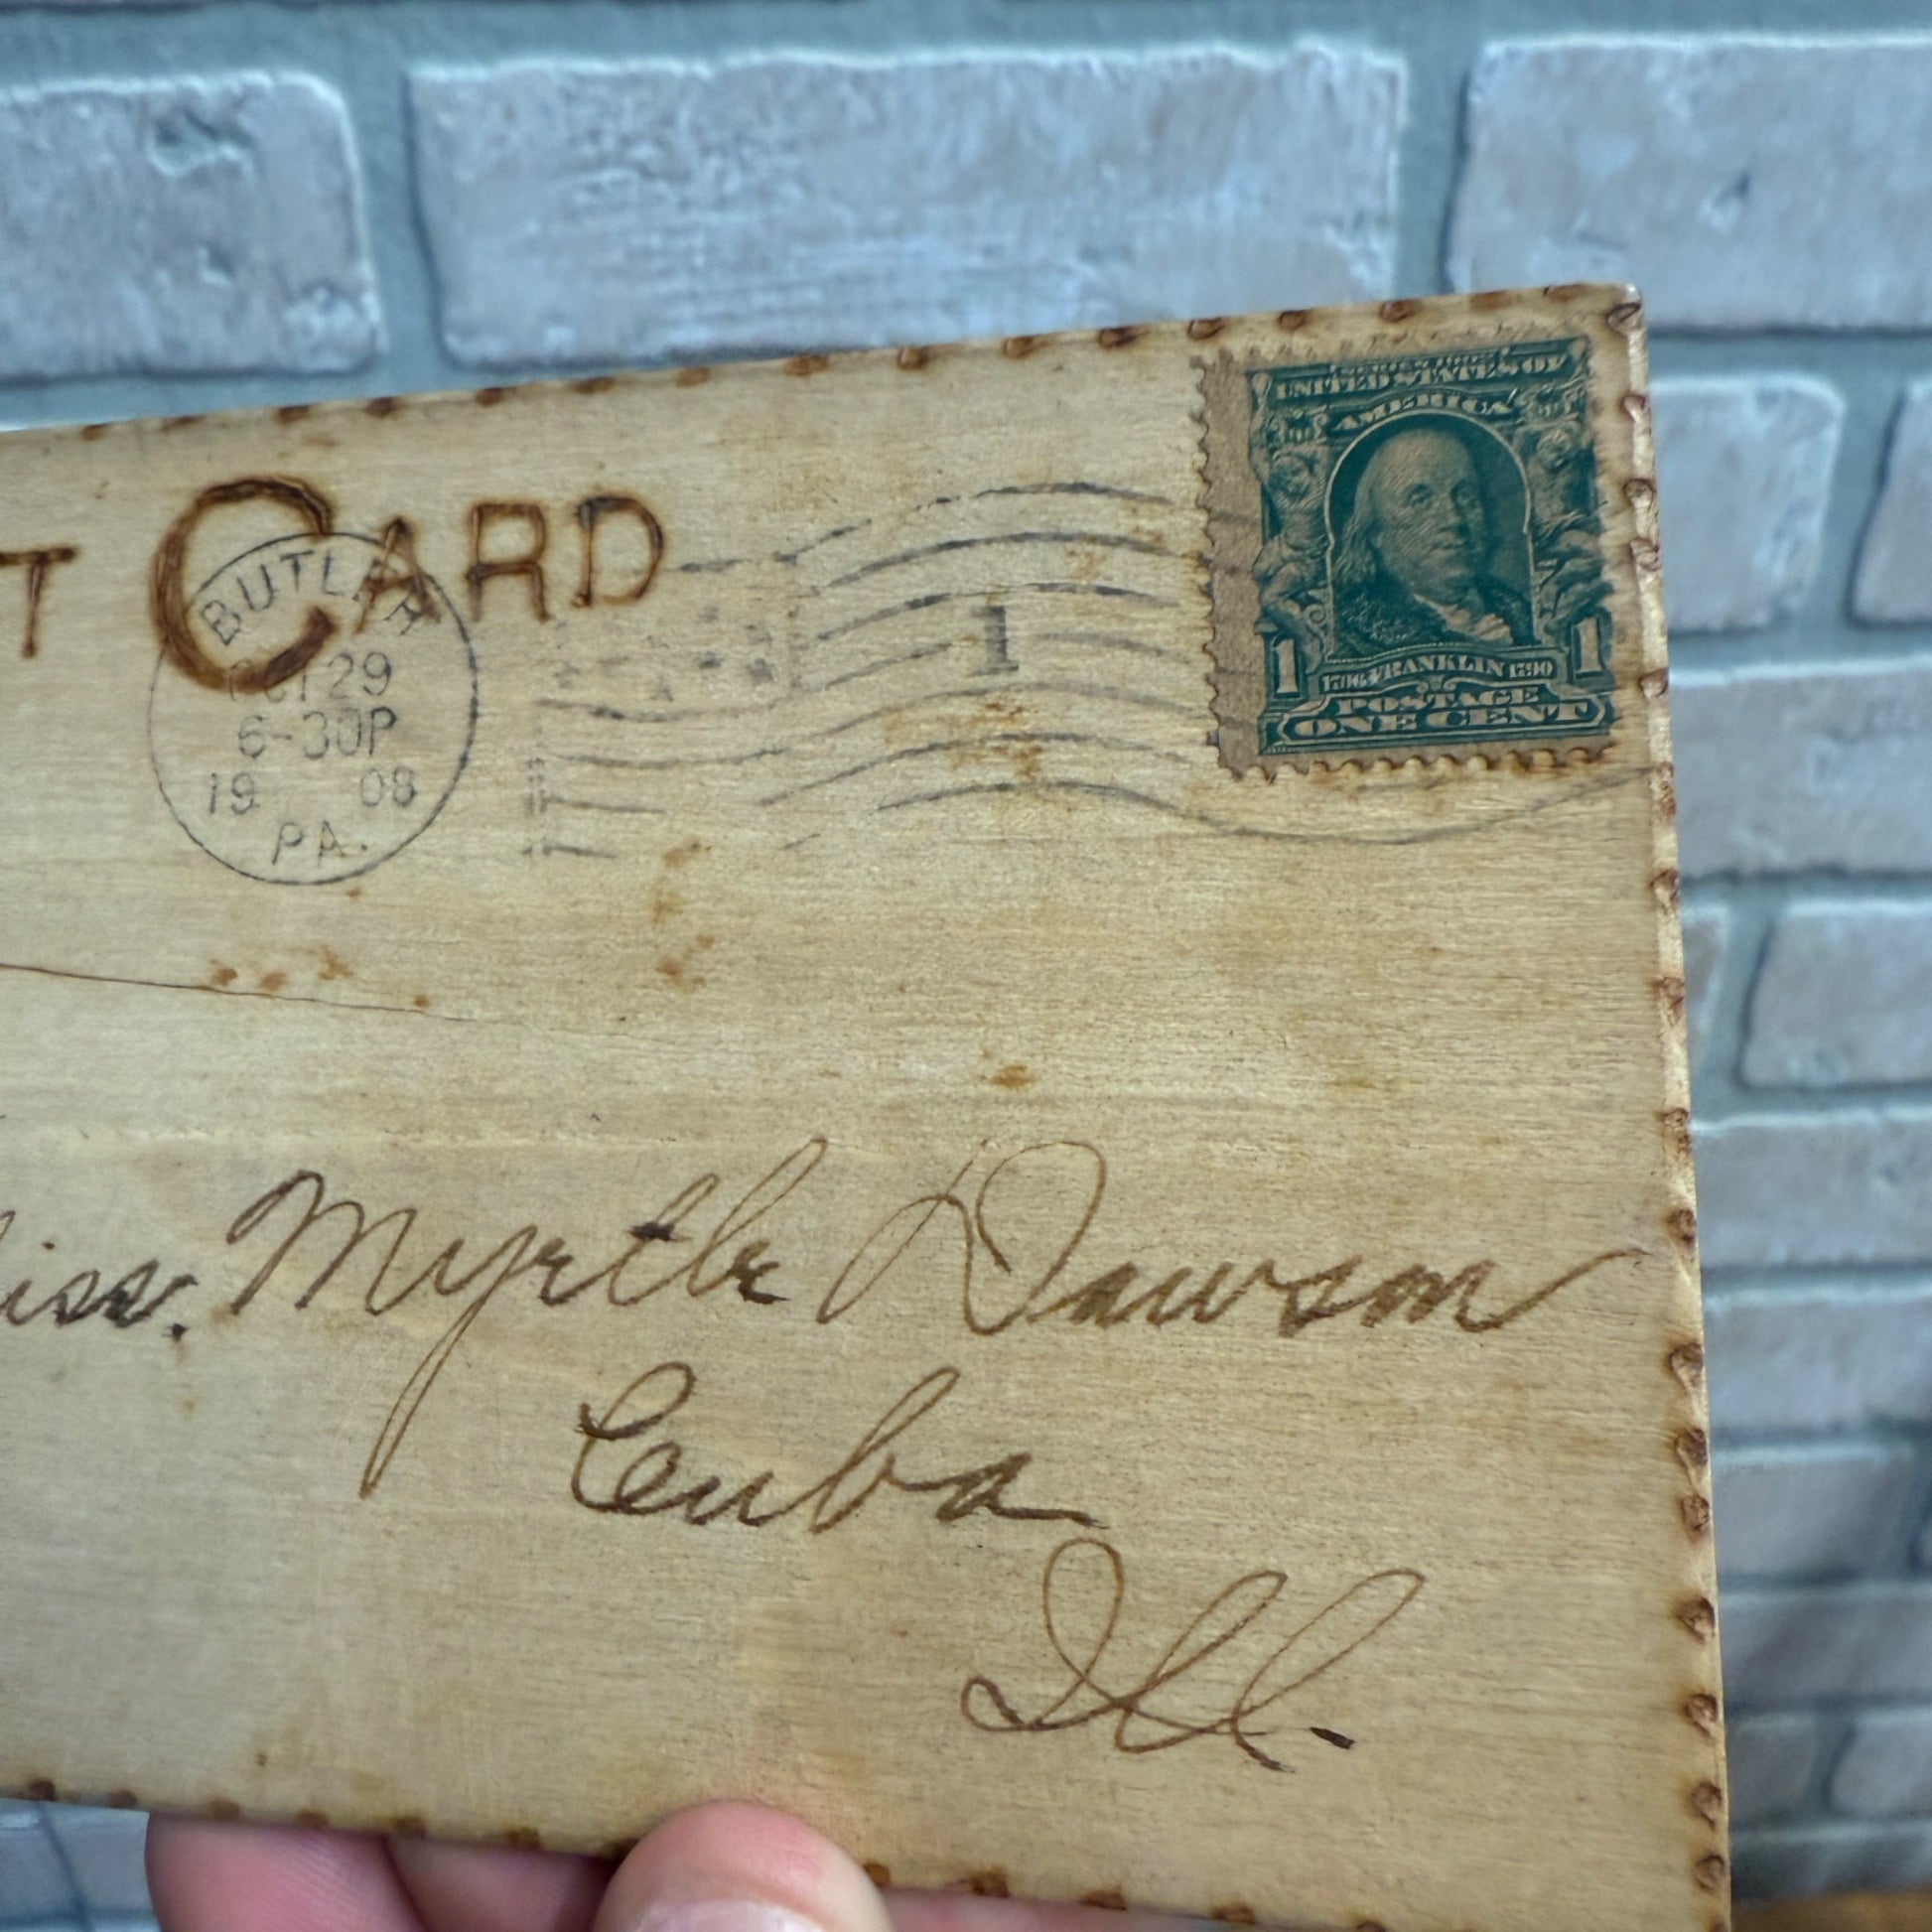 T CARD
BUTLER
OCT 29
6-30P
19 08
PA.
1
UNITED STATES OF
AMERICA
1 1
1706 FRANKLIN 1790
POSTAGE
ONE CENT
iss. Myrtle Dawson
Cuba
Ill.